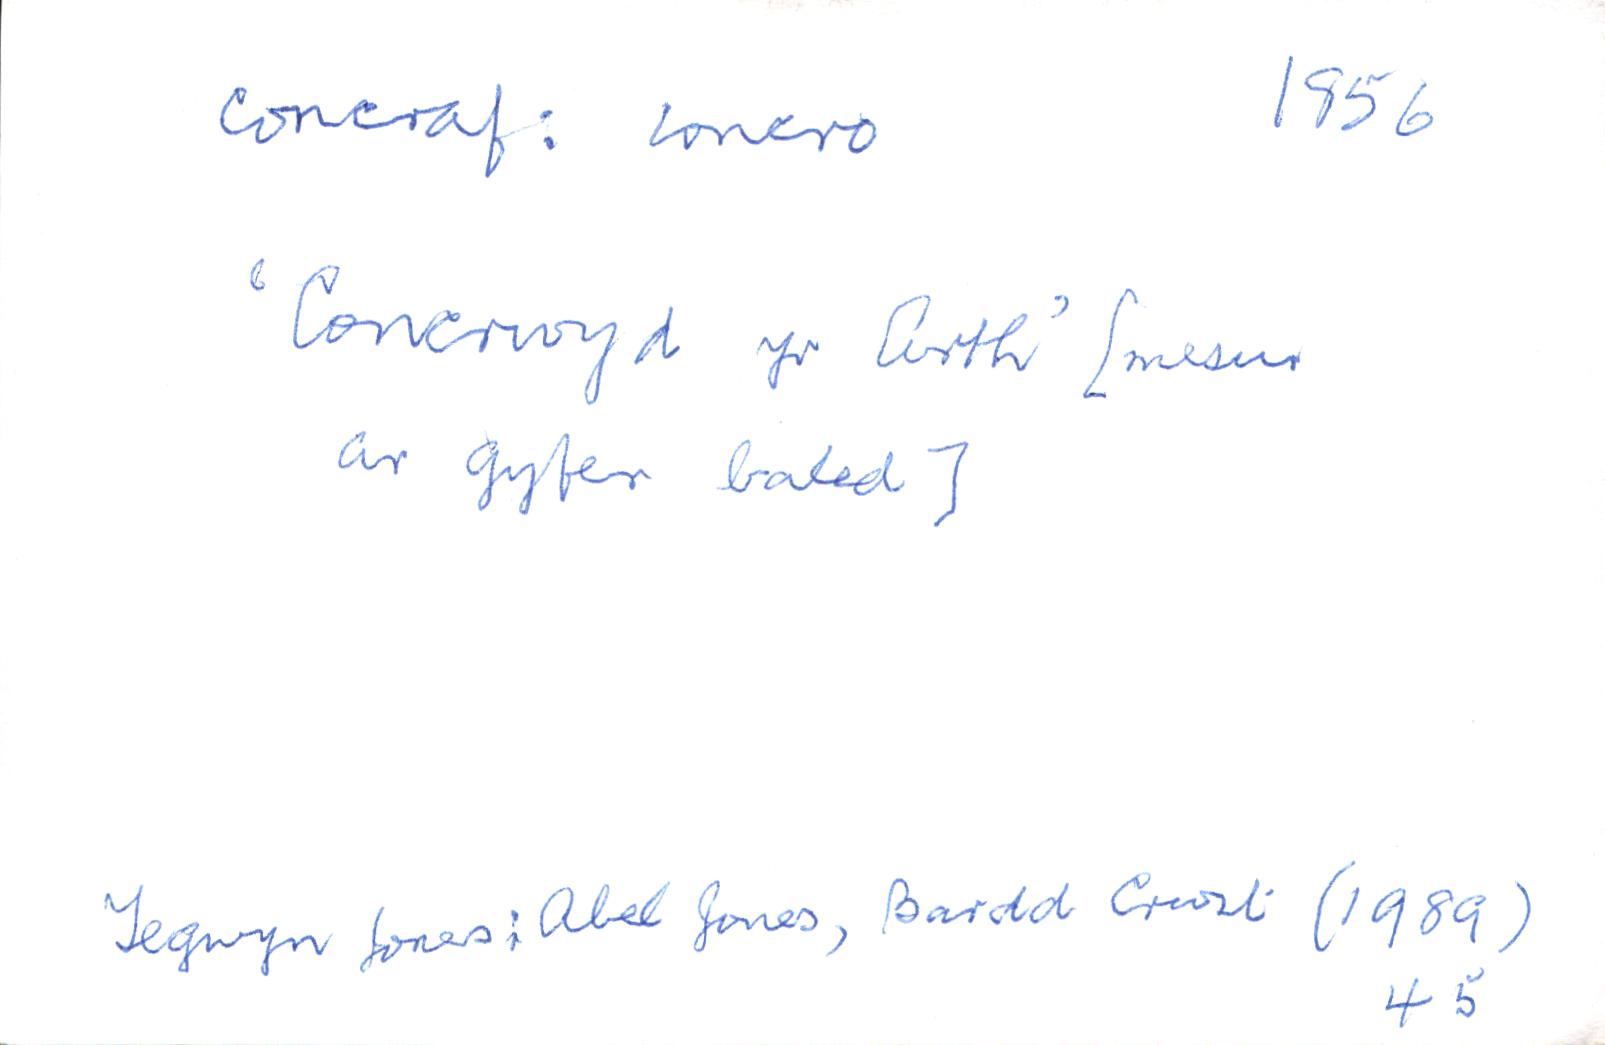 concraf: concro 1856
'Concrwyd yr Arth' [mesur
ar gyfer baled]
Tegwyn Jones: Abel Jones, Bardd Crwst (1989)
45